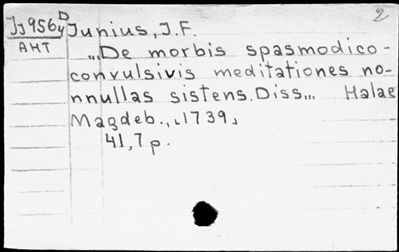 Jj956y D 2
Junius, J.F.
АНТ
„De morbis spasmodico-
convulsivis meditationes no-
nnullas sistens. Diss... Halae
Magdeb., „1739„
41,7 p.